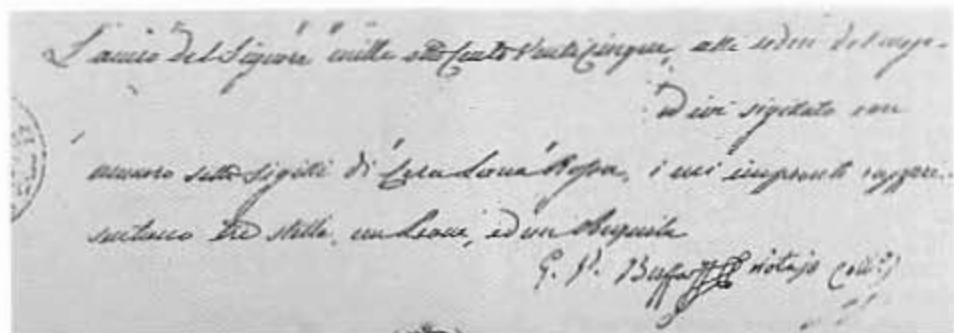 L'anno del Signore mille otto Cento Venti Cinque, alli sedici del mese
ed ivi sigillato con
numero sette sigilli di Cera Lacca Rossa, i cui impronti rappre-
sentano tre stelle, un Leone, ed un Aquila
G. P. notajo